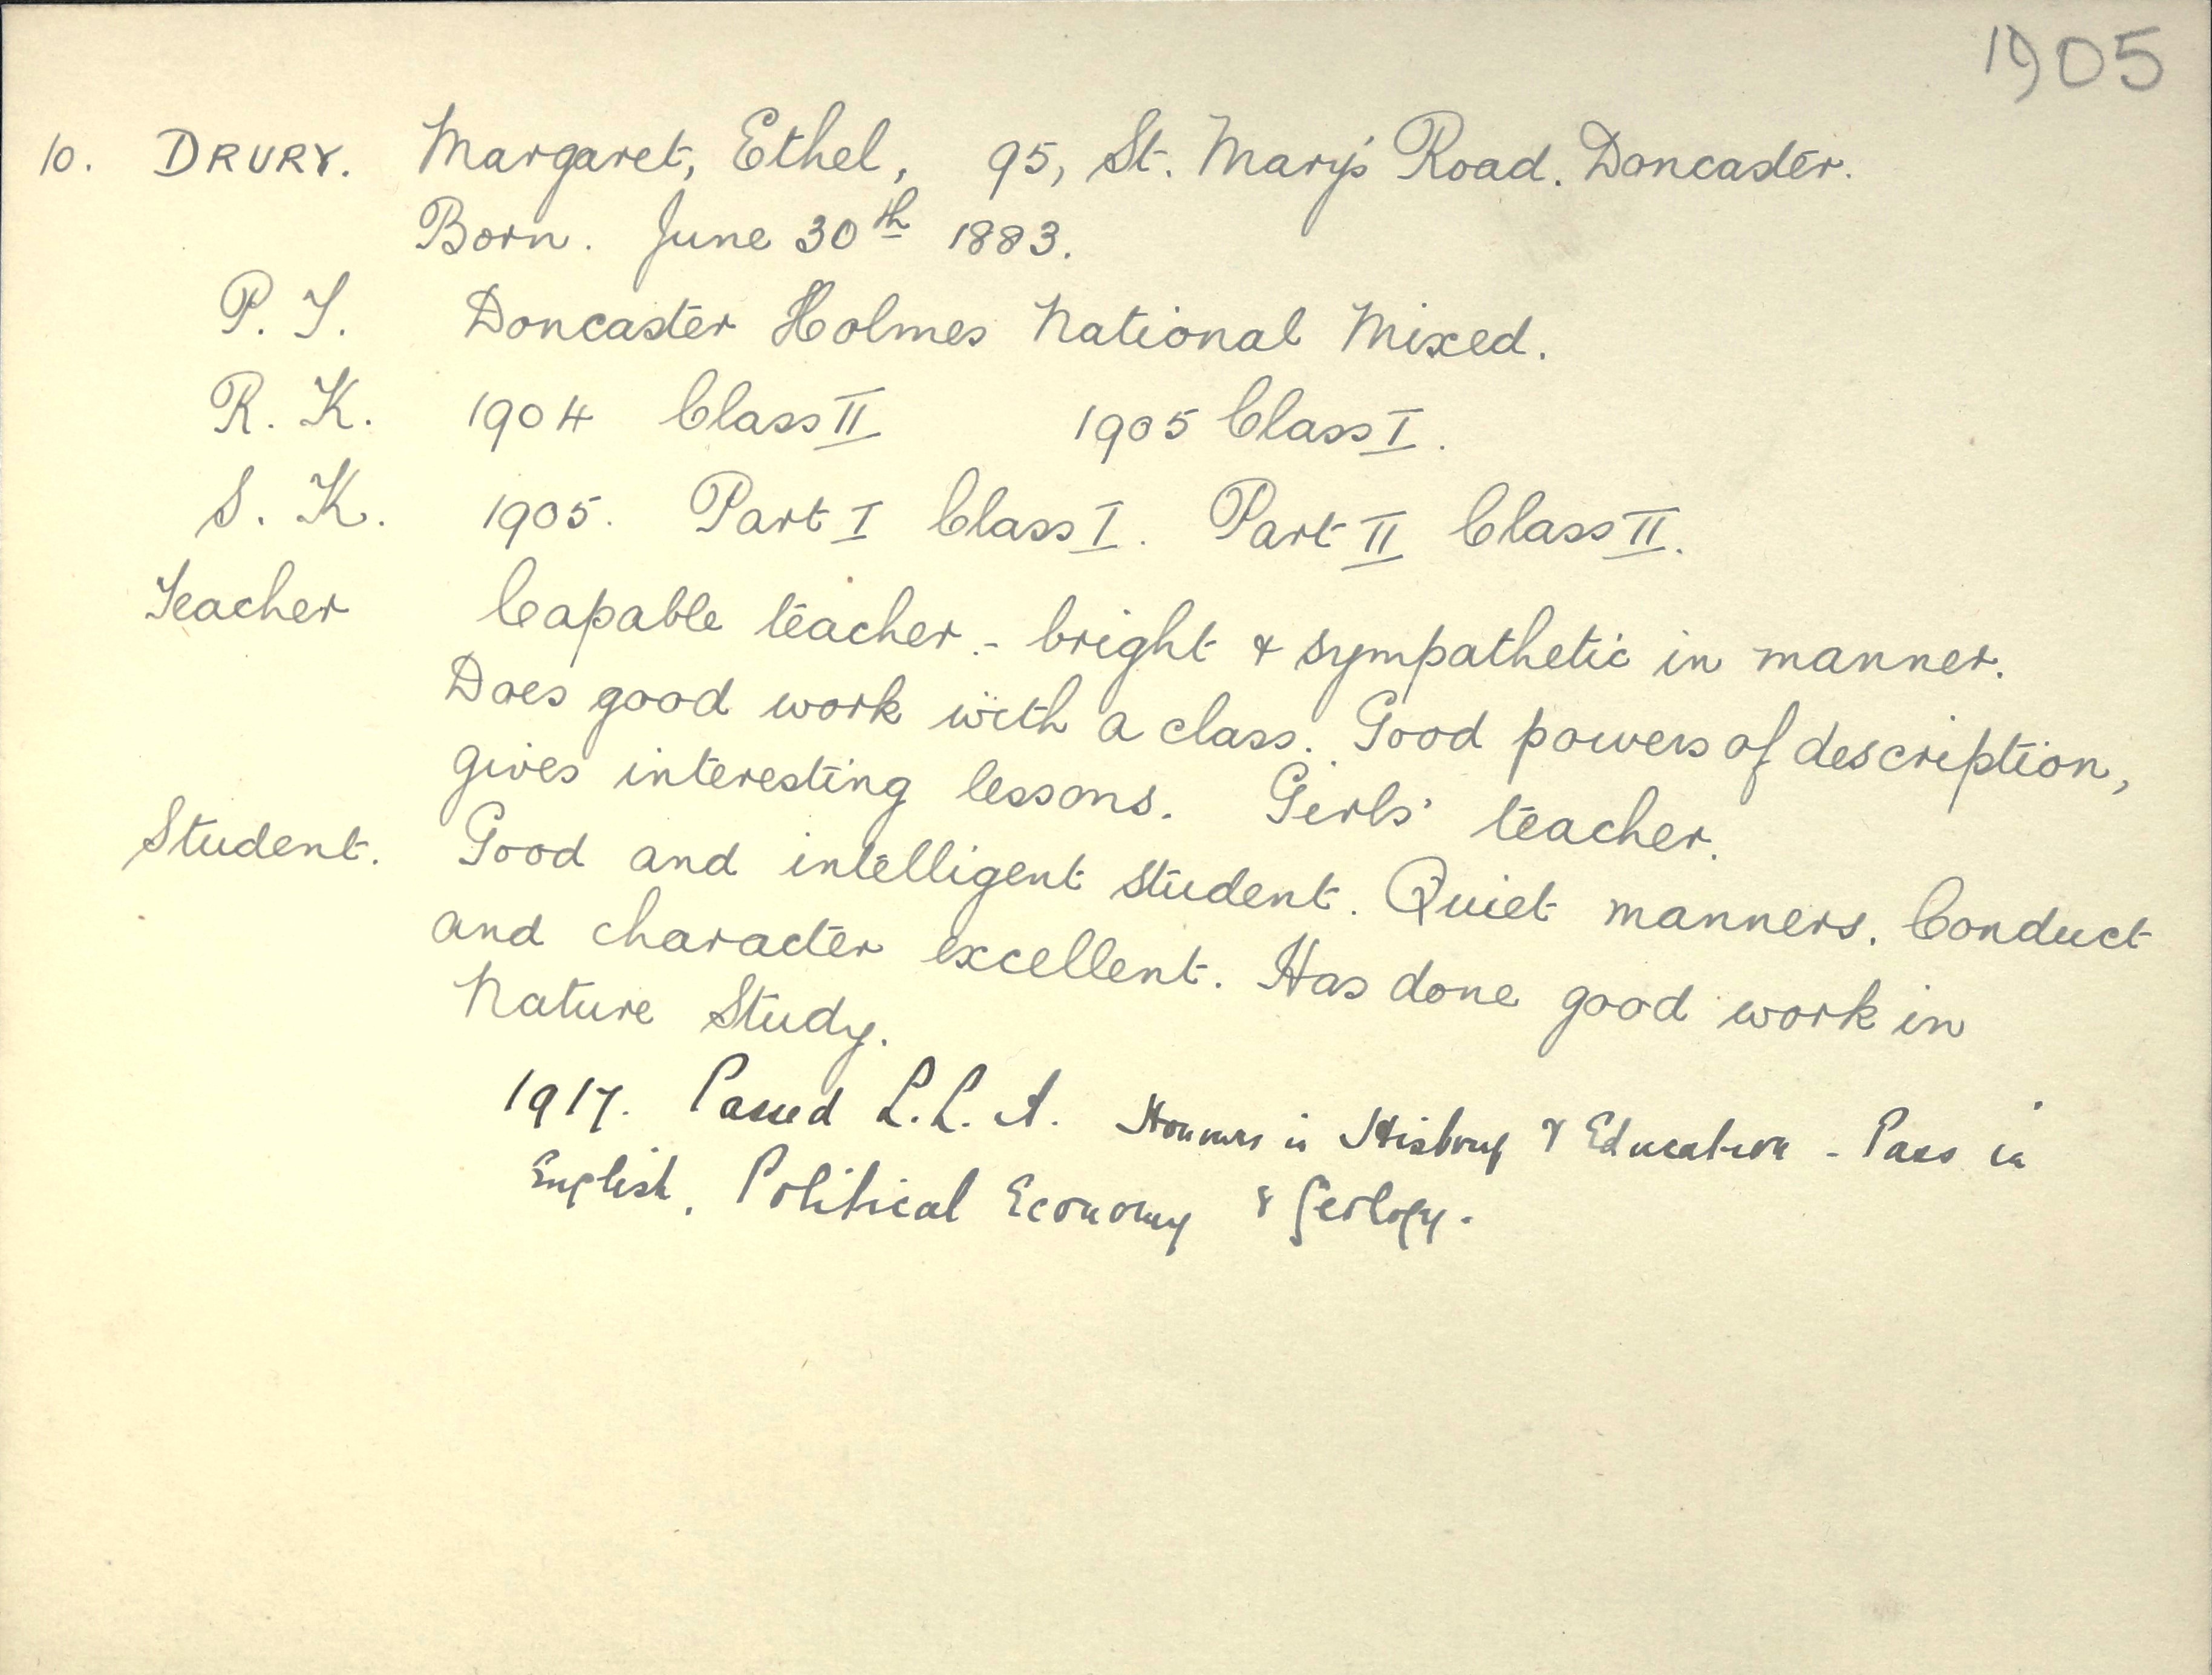 1905
10. DRURY. Margaret, Ethel, 95, St. Mary's Road. Doncaster.
Born. June 30th 1883.
P. T. Doncaster Holmes National Mixed.
R. K. 1904 Class II 1905 Class I.
S. K. 1905. Part I Class I. Part II Class II.
Teacher Capable teacher - bright & sympathetic in manner.
Does good work with a class. Good powers of description,
gives interesting lessons. Girls' teacher.
Student. Good and intelligent student. Quiet manners. Conduct
and character excellent. Has done good work in
Nature Study.
1917. Passed L.L.A. Honours in History & Education - Pass in
English, Political Economy & Geology.